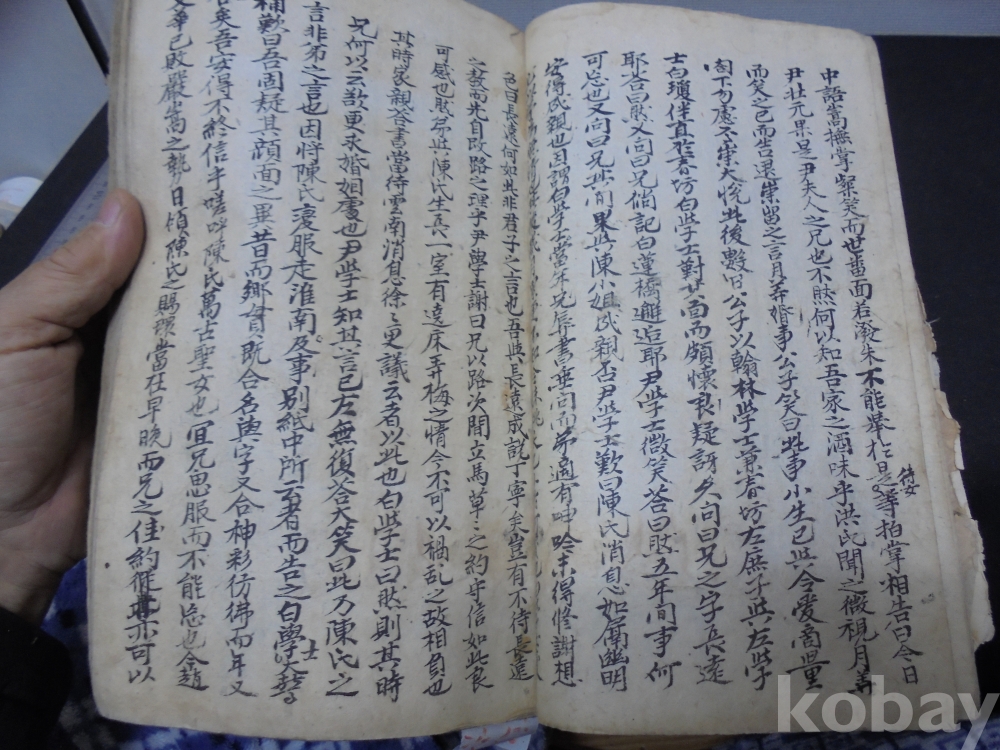 中語嵩撫掌絮笑而世蕃面若潑朱不能擧作是等拍掌相告曰今日
侍女
尹壯元果是尹夫人之兄也不然何以知吾家之酒味乎洪氏聞之微視月華
而笑之已而告還嵩留之言月華婚事公子笑曰此事小生已與令愛商量
閤下勿慮不嵩大悅此後數日公子以翰林學士兼春坊左庶子與左學
士白瓊伴直於春坊白學士對其面而頗懷衷疑訝久向曰兄之字長遠
耶答曰然又問曰兄備記白蓮橋邂逅耶尹學士微笑答曰然五年間事何
可忘也又向曰兄其間果與陳小姐成親否尹學士歎曰陳氏消息如屬幽明
安得成親也自謂白學士當年兄辱書垂問而弟適有呻吟未得修謝想
色曰長遠何如此非君子之言也吾與長遠成說丁寧矣豈有不待長遠
之教而先自改路之理乎尹學士謝曰兄以路次間立馬草之約守信如此良
可感也然弟與陳氏生長一室有遶床弄梅之情今不可以禍亂之故相負也
其時家親答書當待雲南消息徐之更議云者以此也白學士曰然則其時
兄何以云欲更求婚姻處也尹學士知其言已左無復答大笑曰此乃陳氏之
言非弟之言也因將陳氏變服走淮南及事別紙中所云者而告之白學士
補歎曰吾固疑其顔面之異昔而鄕貫旣合名與字又合神彩彷彿而年又
矣吾安得不終信乎嗟呼陳氏萬古聖女也宜兄思服而不能忘也今趙
文華已敗嚴嵩之勢日傾陳氏之賜環當在早晩而兄之佳約從此亦可以
kobay